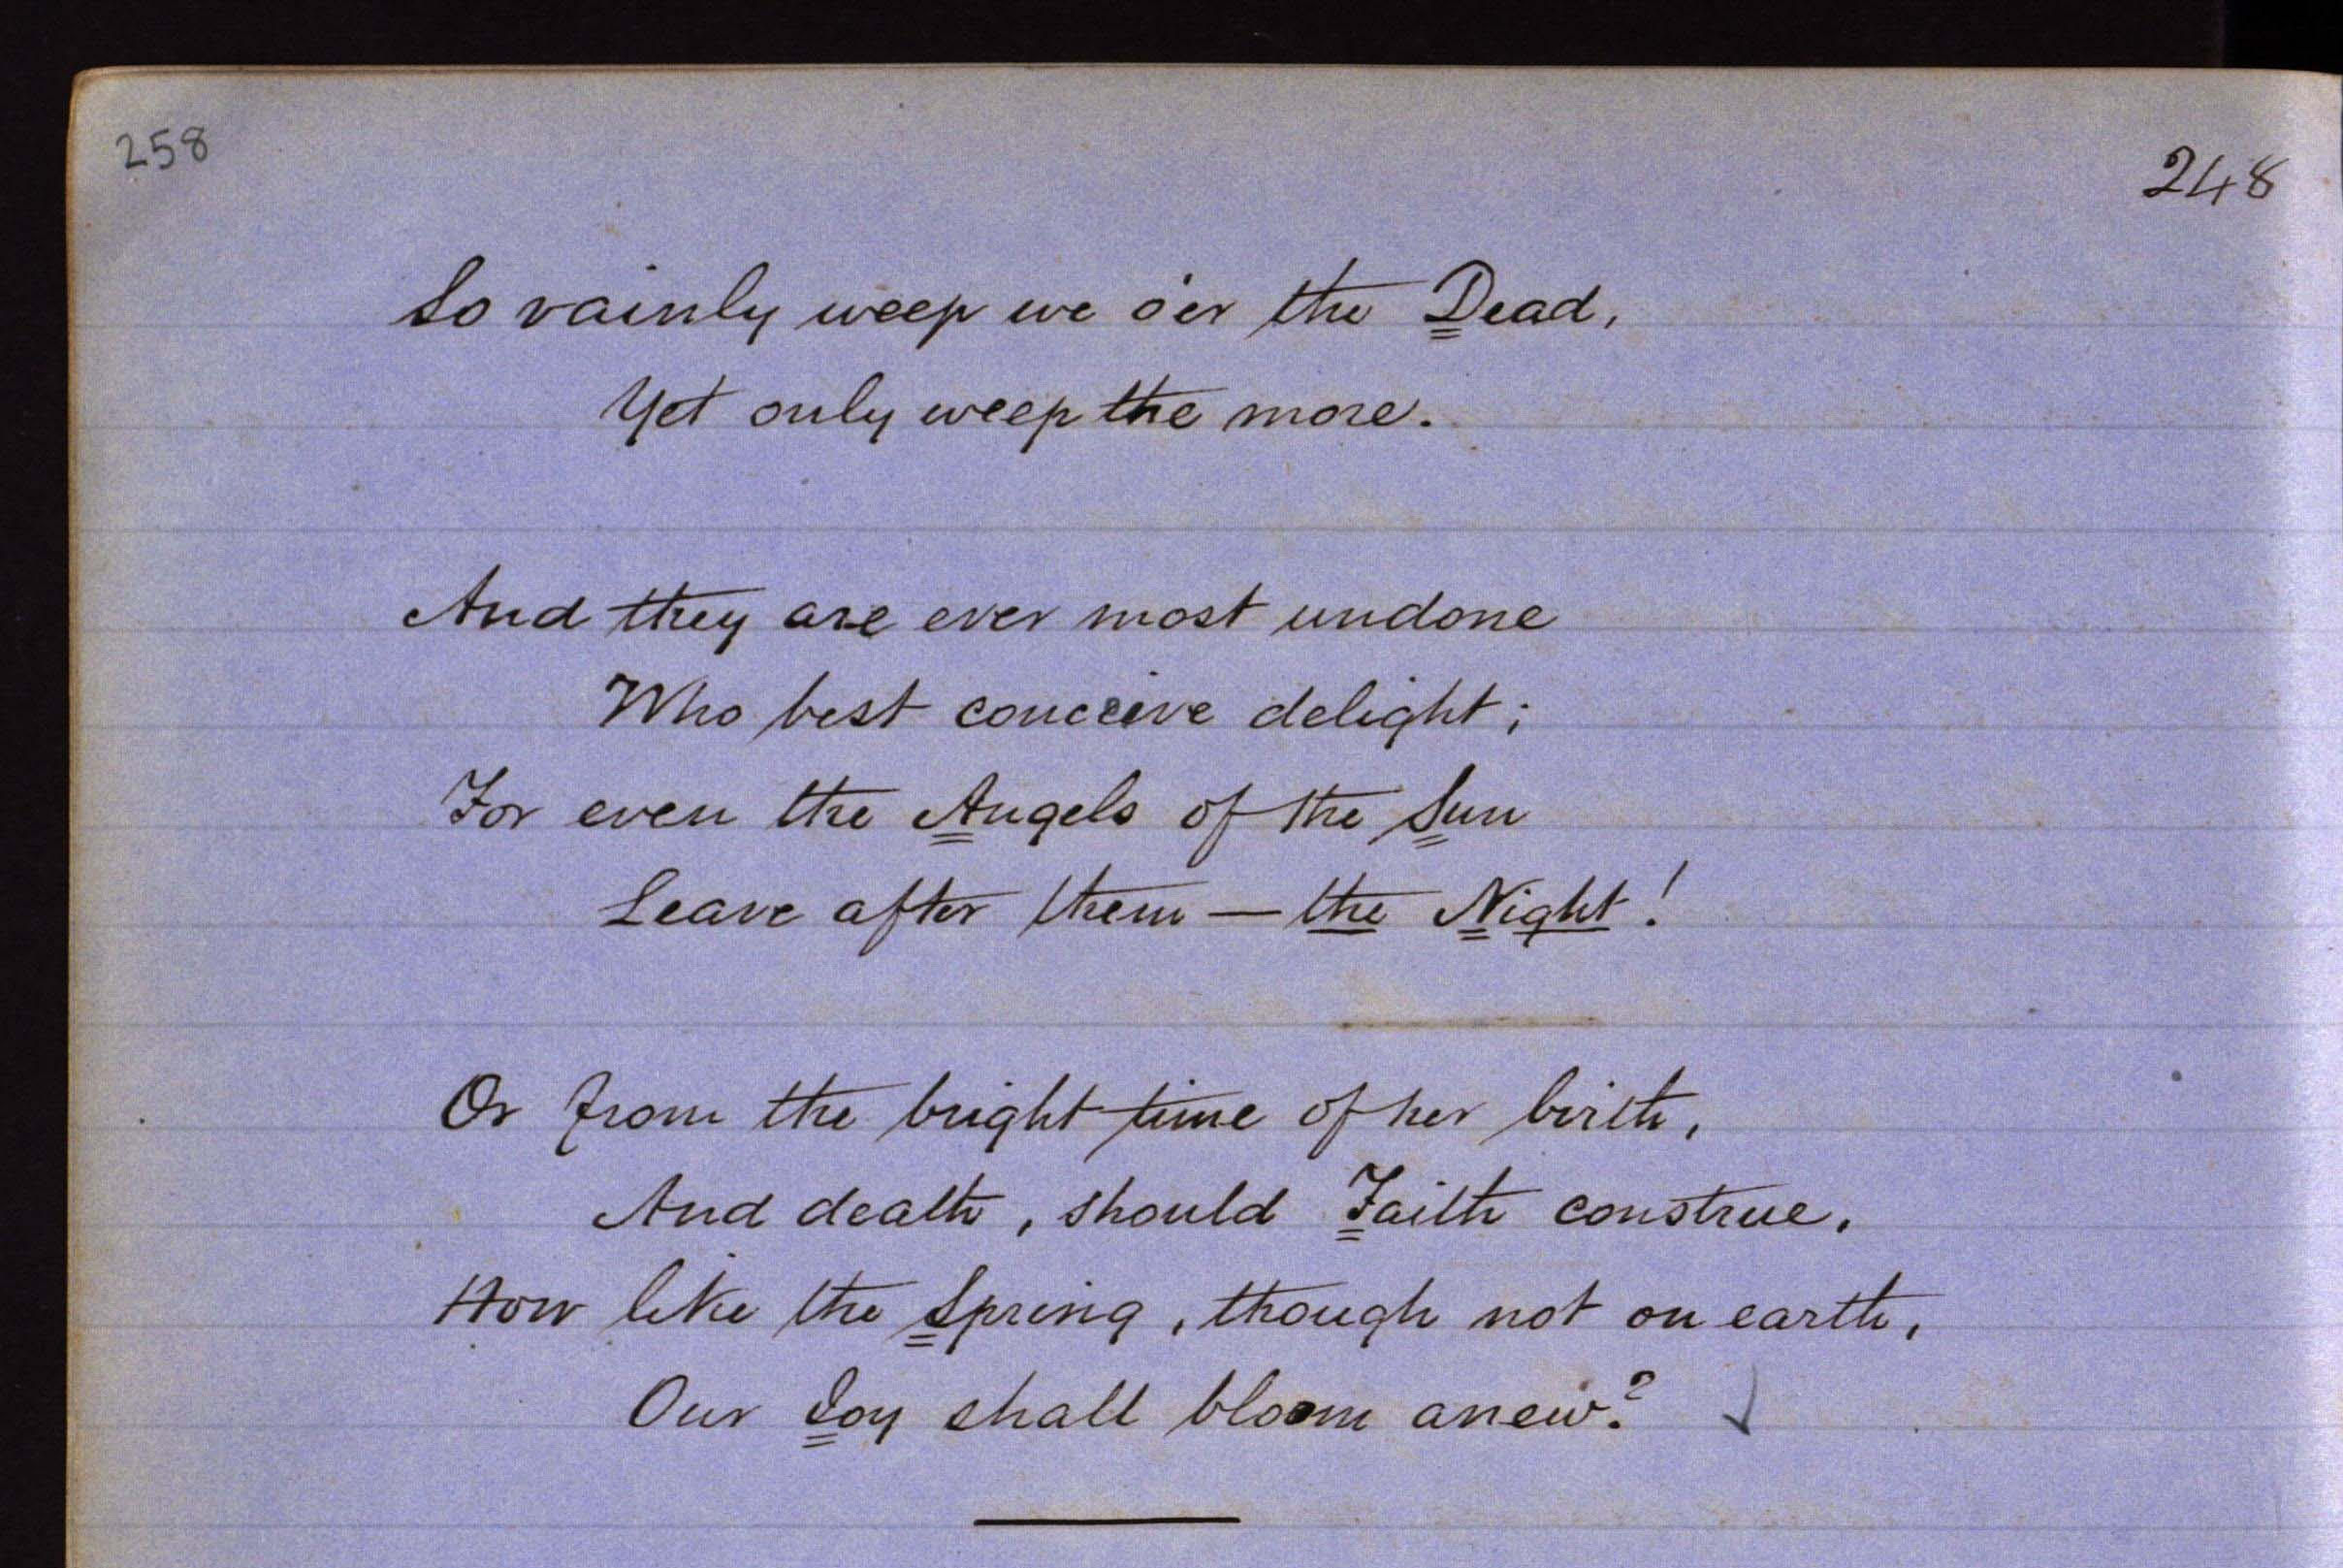 258
248
So vainly weep we o'er the Dead,
Yet only weep the more.
And they are ever most undone
Who best conceive delight;
For even the Angels of the Sun
Leave after them — the Night!
Or from the bright time of her birth,
And death, should Faith construe,
How like the Spring, though not on earth,
Our Joy shall bloom anew?